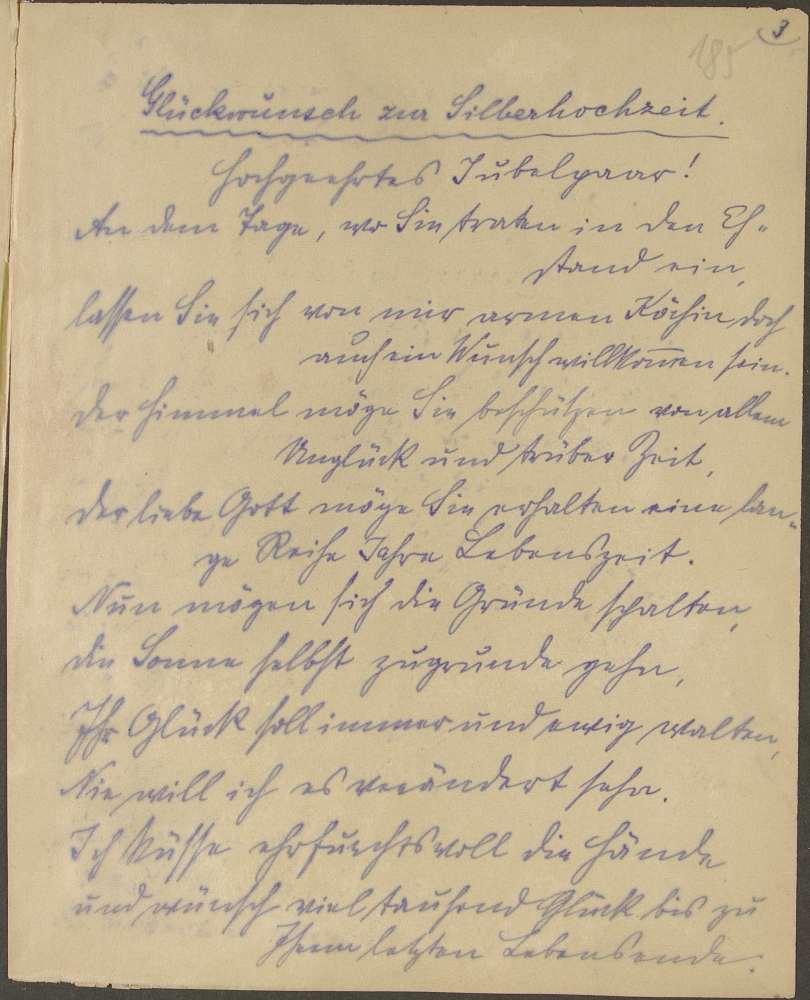 3
185
Glückwünsch zur Silberhochzeit.
Hochgeehrtes Jubelpaar!
An dem Tage, wo Sie traten in den Eh-
stand ein,
lassen Sie sich von mir armen Köchin doch
auch ein Wunsch willkom̅en sein.
Der Himmel möge Sie beschützen von allem
Unglück und trüber Zeit,
der liebe Gott möge Sie erhalten eine lan-
ge Reihe Jahre Lebenszeit.
Nun mögen sich die Gründe spalten,
die Sonne selbst zugrunde gehn,
Ihr Glück soll immer und ewig walten,
Nie will ich es verändert sehn.
Ich küsse ehrfurchtsvoll die Hände
und wünsch viel tausend Glück bis zu
Ihrem letzten Lebensende.